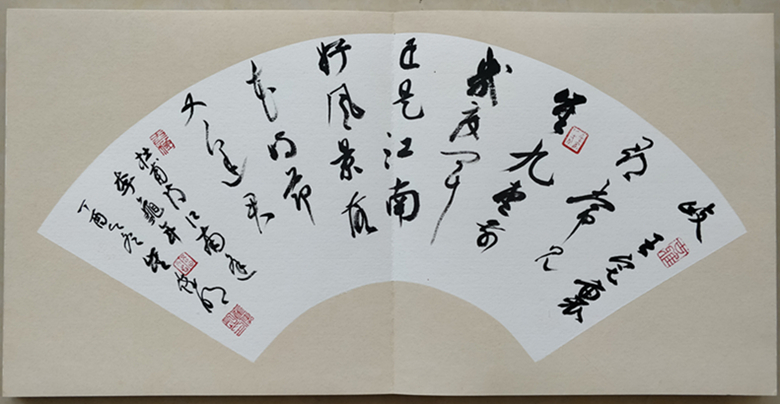 岐王宅裏
寻常见
崔九堂前
幾度闻
正是江南
好風景落
花时节
又逢君
杜甫诗江南逢
李龜年
丁酉